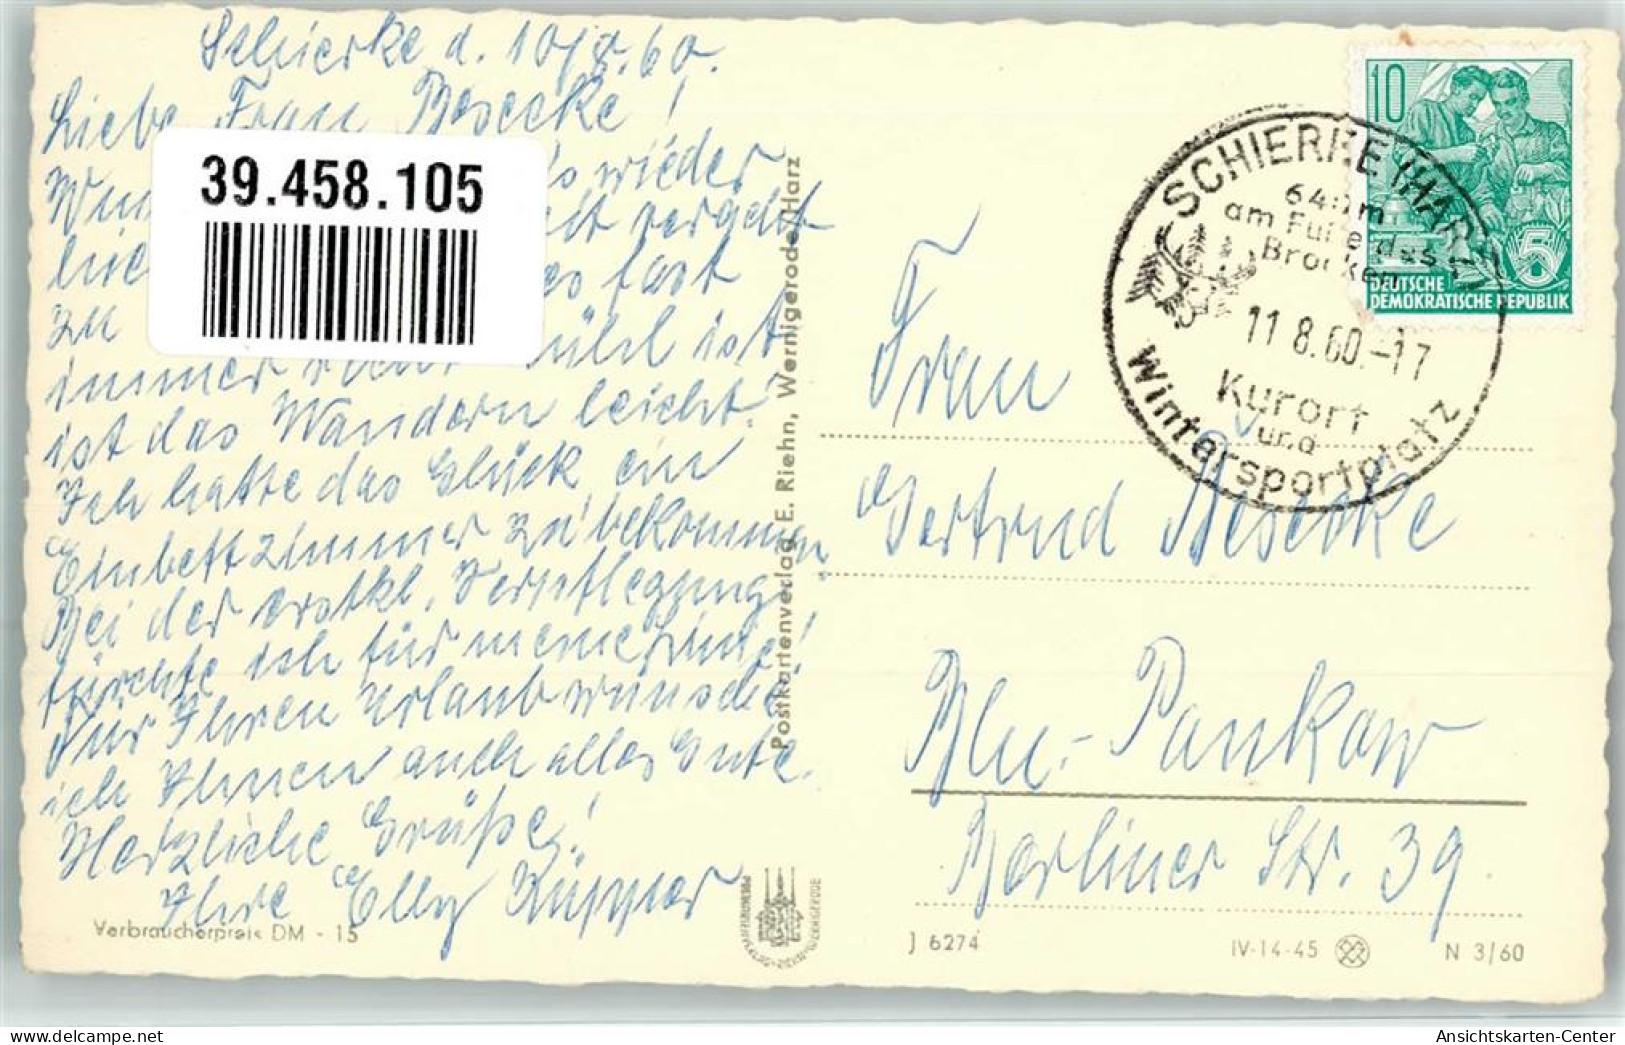 Schierke d. 10/8.60.
Liebe Frau Beseeke!
39.458.105
wieder
vergeht
fast
zu
immer ist
ist das Wandern leicht!
Ich hatte das Glück ein
Einbettzimmer zu bekommen
Bei der erstkl. Verpflegung
fürchte ich für meine
Für Ihren Urlaub wünsche
ich Ihnen auch alles Gute.
Herzliche Grüße!
Ihre Elly Küpper
Verbraucherpreis DM -.15
Postkartenverlag E. Riehn, Wernigerode/Harz
10
5
DEUTSCHE
DEMOKRATISCHE REPUBLIK
SCHIERKE (HARZ)
640 m
am Fuße des
Brocken
11.8.60.-17
Kurort
und
Wintersportplatz
Frau
Gertrud Beseeke
Bln.-Pankow
Berliner Str. 39
J 6274
IV-14-45
N 3/60
39458105
Ansichtskarten-Center